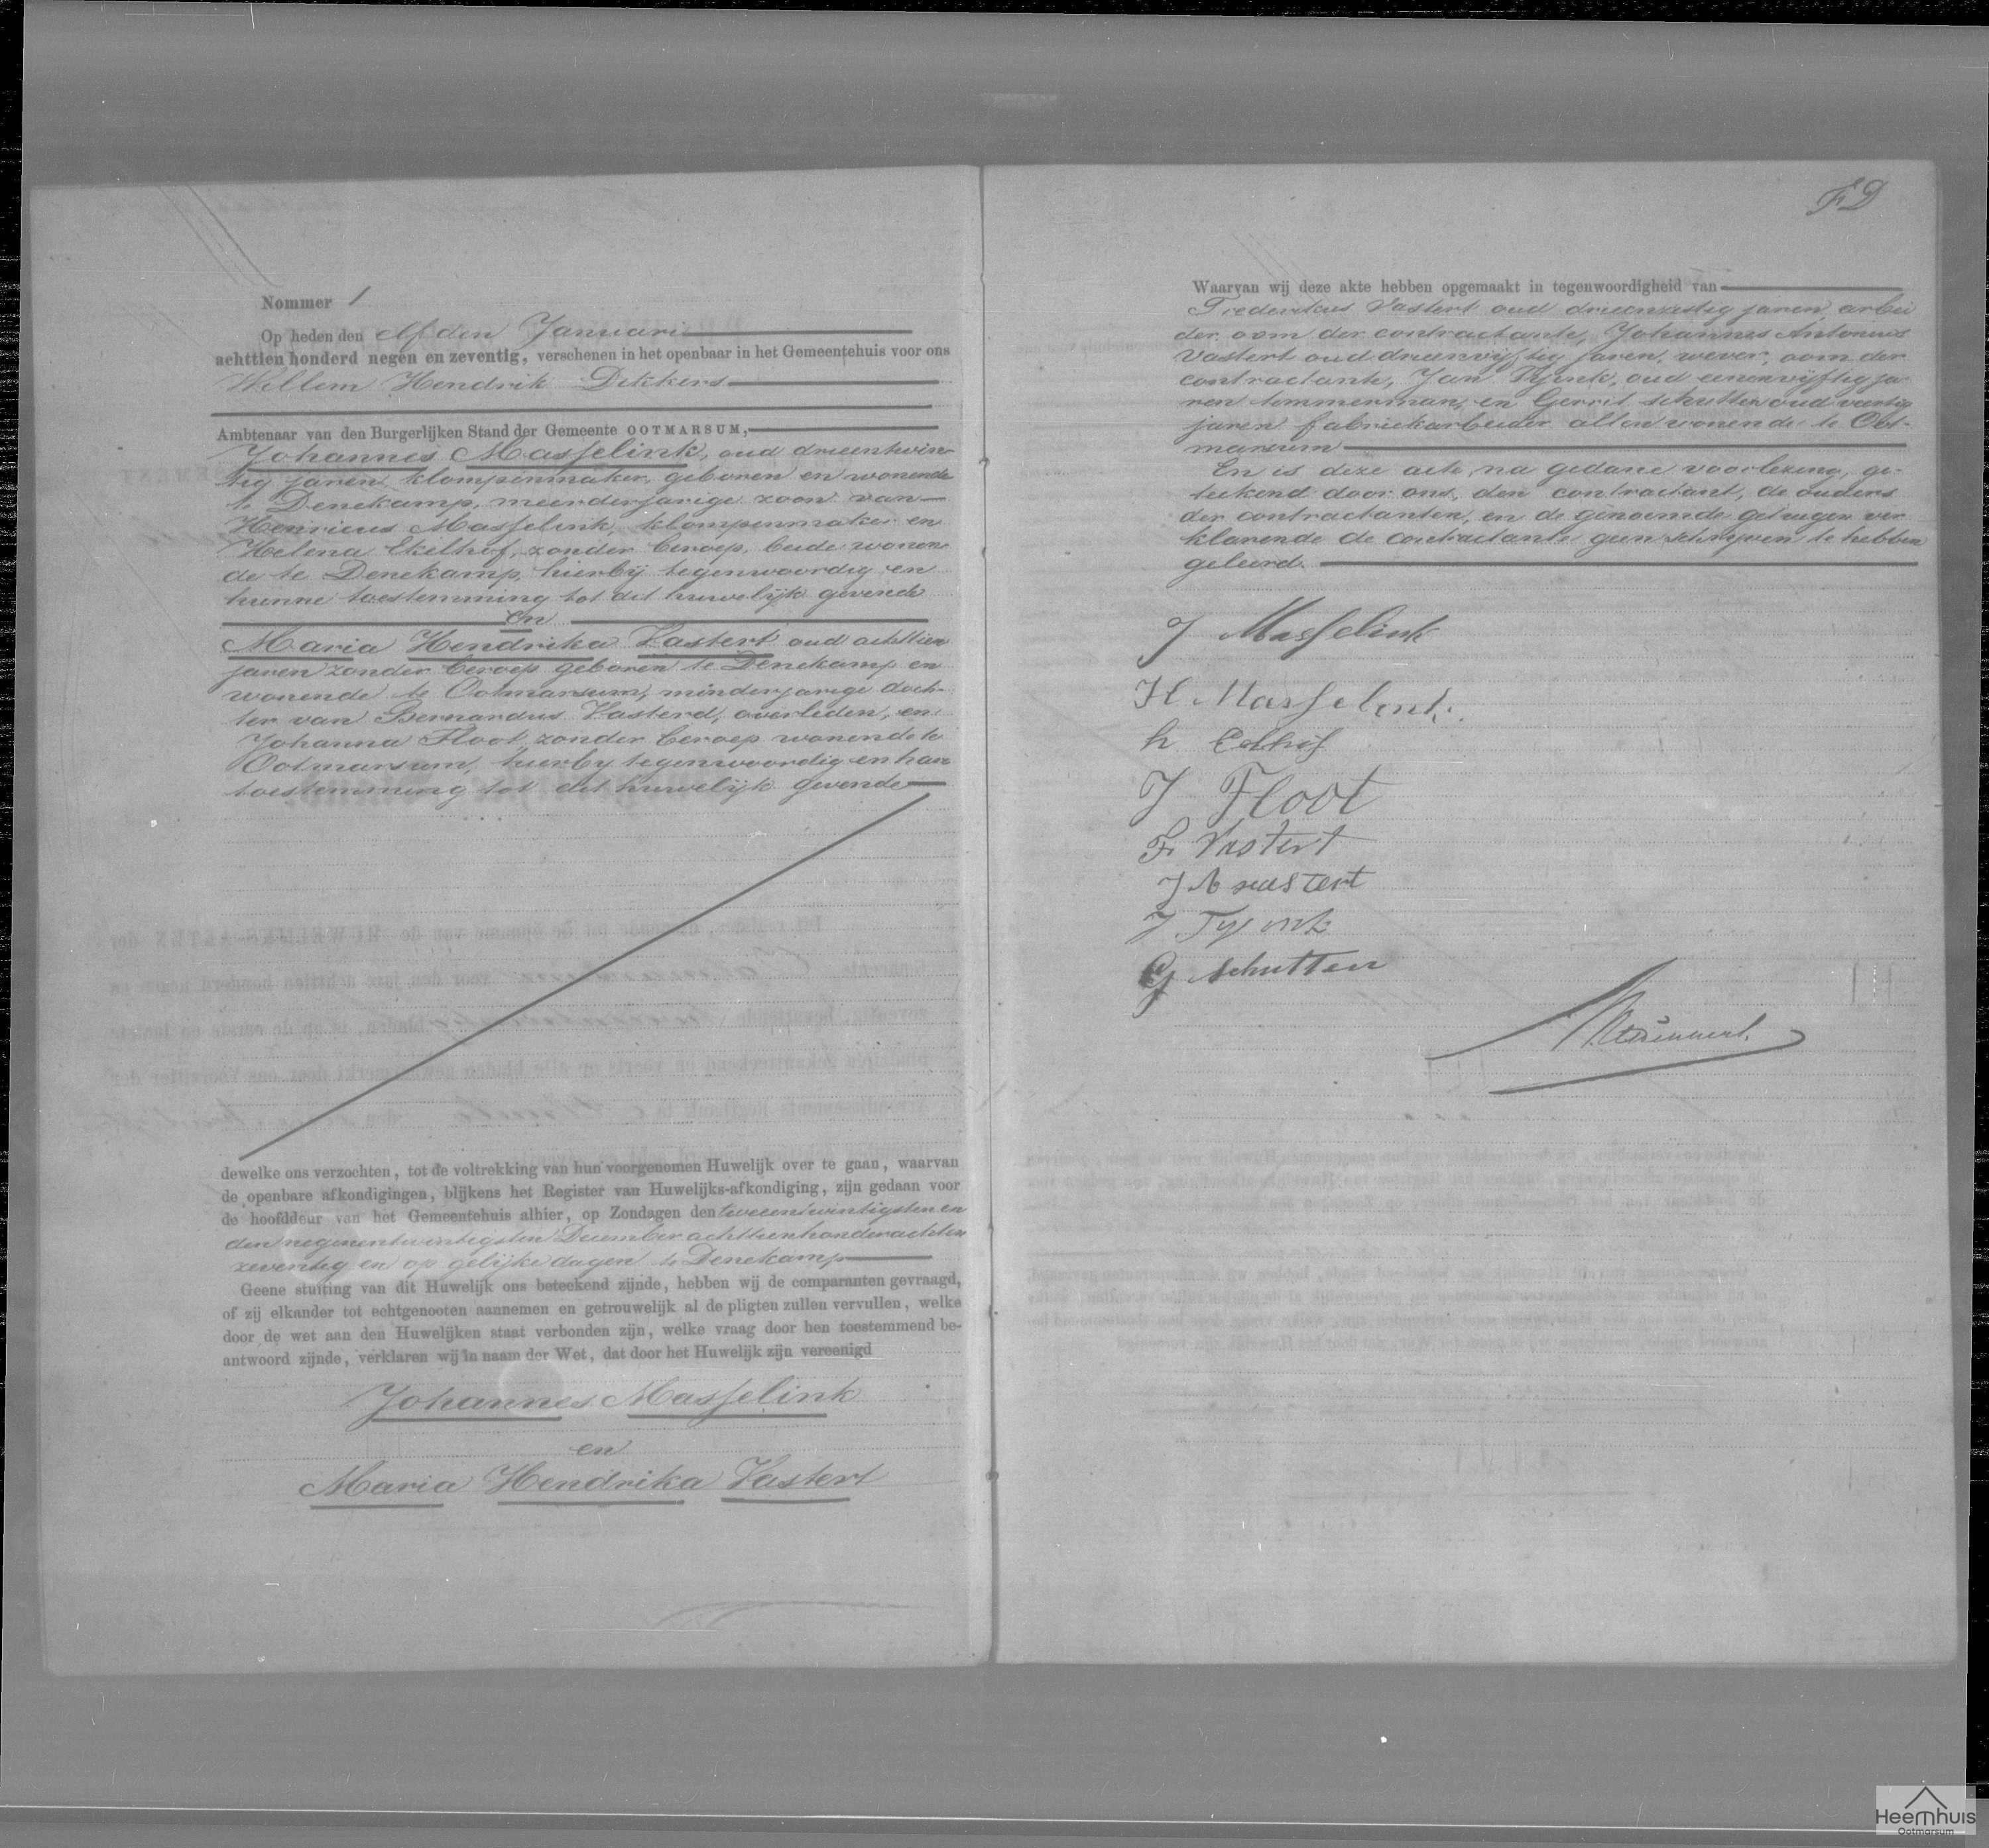 Nommer 1
Op heden den elfden Januari
achttien honderd negen en zeventig, verschenen in het openbaar in het Gemeentehuis voor ons
Willem Hendrik Dikkers
Ambtenaar van den Burgerlijken Stand der Gemeente OOTMARSUM,
Johannes Masselink, oud drieentwin-
tig jaren, klompenmaker, geboren en wonende
te Denekamp, meerderjarige zoon van
Henricus Masselink, klompenmaker en
Helena Ekelhof, zonder beroep, beide wonen
de te Denekamp, hierbij tegenwoordig en
hunne toestemming tot dit huwelijk gevende
En
Maria Hendrika Vastert oud achttien
jaren zonder beroep geboren te Denekamp en
wonende te Ootmarsum, minderjarige doch-
ter van Bernardus Vasterd, overleden, en
Johanna Floot, zonder beroep wonende te
Ootmarsum, hierby tegenwoordig en hare
toestemming tot dit huwelijk gevende
dewelke ons verzochten, tot de voltrekking van hun voorgenomen Huwelijk over te gaan, waarvan
de openbare afkondigingen, blijkens het Register van Huwelijks-afkondiging, zijn gedaan voor
de hoofddeur van het Gemeentehuis alhier, op Zondagen den tweeentwintigsten en
den negenentwintigsten December achttienhonderachten
zeventig en op gelijke dagen te Denekamp
Geene stuiting van dit Huwelijk ons beteekend zijnde, hebben wij de comparanten gevraagd,
of zij elkander tot echtgenooten aannemen en getrouwelijk al de pligten zullen vervullen, welke
door de wet aan den Huwelijken staat verbonden zijn, welke vraag door hen toestemmend be-
antwoord zijnde, verklaren wij in naam der Wet, dat door het Huwelijk zijn vereenigd
Johannes Masselink
en
Maria Hendrika Vastert
FD
Waarvan wij deze akte hebben opgemaakt in tegenwoordigheid van
Fredericus Vastert oud drieenzestig jaren, arbei
der oom der contractante, Johannes Antonius
Vastert oud drieenvijftig jaren, wever, oom der
contractante, Jan Tijink, oud eenenvijftig ja
ren timmerman, en Gerrit Schutten oud veertig
jaren fabriekarbeider allen wonende te Oot-
marsum
En is deze acte, na gedane voorlezing, ge-
teekend door ons, den contractant, de ouders
der contractanten, en de genoemde getuigen ver
klarende de contractante geen schrijven te hebben
geleerd.
J Masselink
H Masselink
h Eekhof
J Floot
F. Vastert
J A vastert
J Tyink
G Schutten
Heemhuis
Ootmarsum